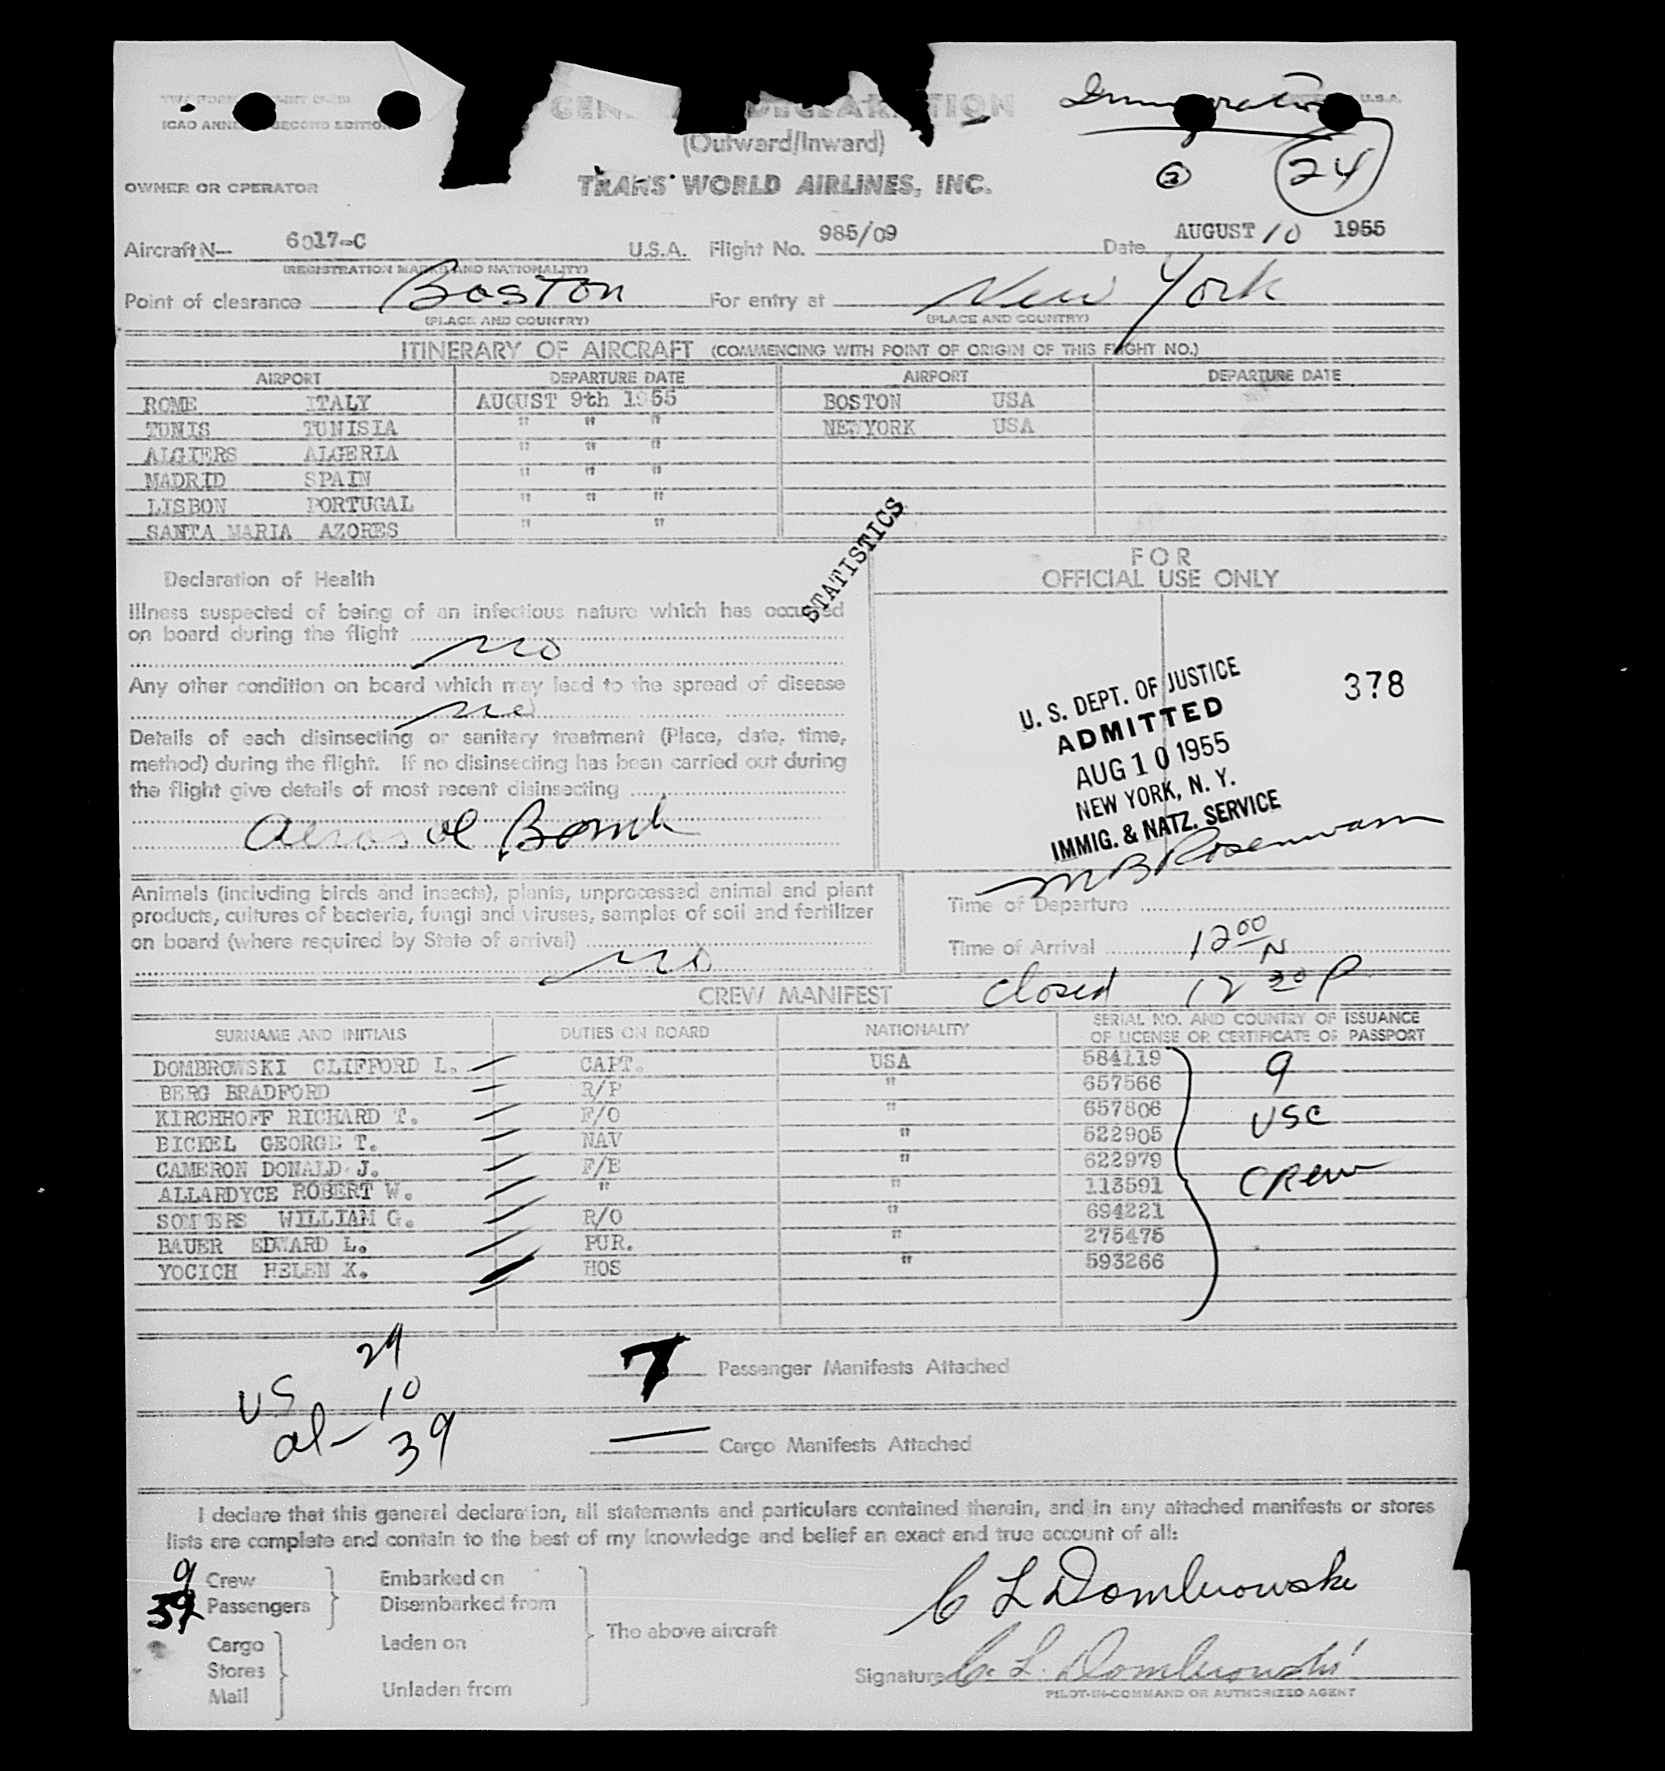 ICAO ANNEX SECOND EDITION
GENERAL DECLARATION
Immigration
U.S.A.
(Outward/Inward)
OWNER OR OPERATOR
TRANS WORLD AIRLINES, INC.
2
24
Aircraft N- 6017-C U.S.A. Flight No. 985/09 Date AUGUST 10 1955
(REGISTRATION MARKS AND NATIONALITY)
Point of clearance Boston For entry at New York
(PLACE AND COUNTRY) (PLACE AND COUNTRY)
ITINERARY OF AIRCRAFT (COMMENCING WITH POINT OF ORIGIN OF THIS FLIGHT NO.)
AIRPORT DEPARTURE DATE AIRPORT DEPARTURE DATE
ROME ITALY AUGUST 9th 1955 BOSTON USA
TUNIS TUNISIA " " " NEWYORK USA
ALGIERS ALGERIA " " "
MADRID SPAIN " " "
LISBON PORTUGAL " " "
SANTA MARIA AZORES " "
STATISTICS
FOR
OFFICIAL USE ONLY
Declaration of Health
Illness suspected of being of an infectious nature which has occurred
on board during the flight
no
Any other condition on board which may lead to the spread of disease
no
Details of each disinsecting or sanitary treatment (Place, date, time,
method) during the flight. If no disinsecting has been carried out during
the flight give details of most recent disinsecting
Aerosol Bomb
U. S. DEPT. OF JUSTICE
ADMITTED
AUG 10 1955
NEW YORK, N. Y.
IMMIG. & NATZ. SERVICE
378
M B Rosenmann
Animals (including birds and insects), plants, unprocessed animal and plant
products, cultures of bacteria, fungi and viruses, samples of soil and fertilizer
on board (where required by State of arrival)
no
Time of Departure
Time of Arrival 12 00 N
closed 12 30 P
CREW MANIFEST
SURNAME AND INITIALS DUTIES ON BOARD NATIONALITY SERIAL NO. AND COUNTRY OF ISSUANCE
OF LICENSE OR CERTIFICATE OR PASSPORT
DOMBROWSKI CLIFFORD L. CAPT. USA 584119
BERG BRADFORD R/P " 657566
KIRCHHOFF RICHARD T. F/O " 657806
BICKEL GEORGE T. NAV " 522905
CAMERON DONALD J. F/E " 622979
ALLARDYCE ROBERT W. " " 113591
SOMMERS WILLIAM G. R/O " 694221
BAUER EDWARD L. PUR. " 275475
YOCICH HELEN K. HOS " 593266
9
USC
Crew
29
US 10
al- 39
7 Passenger Manifests Attached
Cargo Manifests Attached
I declare that this general declaration, all statements and particulars contained therein, and in any attached manifests or stores
lists are complete and contain to the best of my knowledge and belief an exact and true account of all:
9 Crew
39 Passengers
Embarked on
Disembarked from
Cargo
Stores
Mail
Laden on
Unladen from
The above aircraft
C L Dombrowski
Signature C. L. Dombrowski
PILOT-IN-COMMAND OR AUTHORIZED AGENT